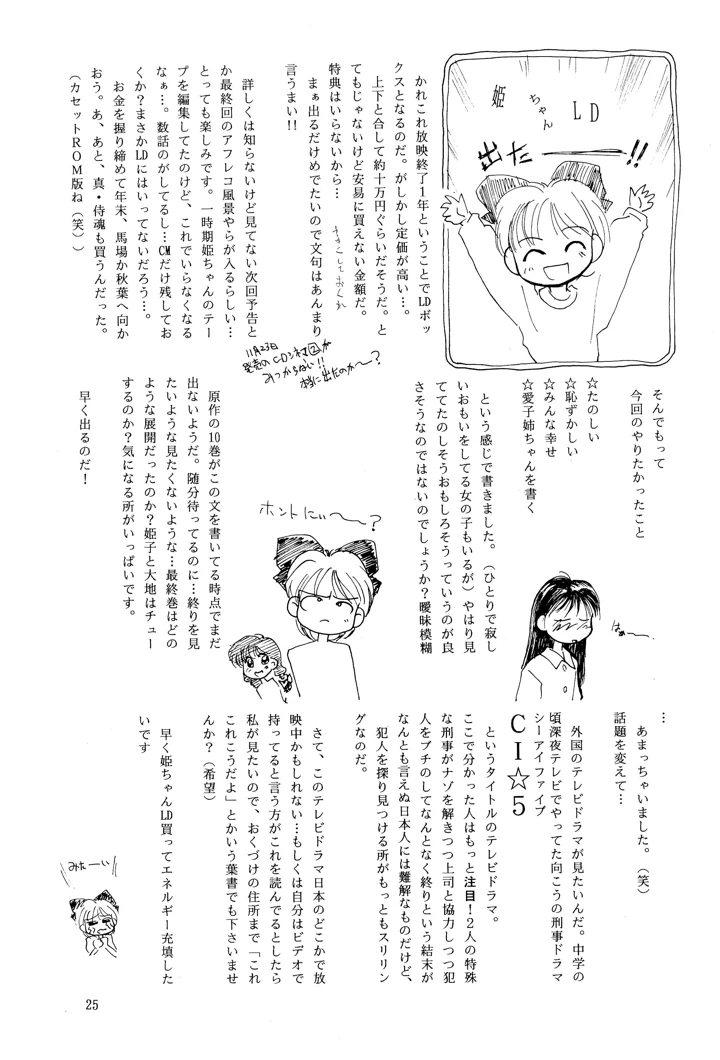 姫ちゃんLD
出たーーー!!
かれこれ放映終了1年ということでLDボッ
クスとなるのだ。がしかし定価が高い…。
上下と合して約十万円ぐらいだそうだ。と
てもじゃないけど安易に買えない金額だ。
特典はいらないから…
やすくしておくれ
まぁ出るだけめでたいので文句はあんまり
言うまい!!
詳しくは知らないけど見てない次回予告と
か最終回のアフレコ風景やらが入るらしい…
とっても楽しみです。一時期姫ちゃんのテー
プを編集してたのけど、これでいらなくなる
なぁ…。数話のがしてるし…CMだけ残してお
くか?まさかLDにはいってないだろう…。
お金を握り締めて年末、馬場か秋葉へ向か
おう。あ、あと、真・侍魂も買うんだった。
(カセットROM版ね(笑))
11月23日
発売のCDシネマ②が
みつからない!!
本当に出たのか〜?
そんでもって
今回のやりたかったこと
☆たのしい
☆恥ずかしい
☆みんな幸せ
☆愛子姉ちゃんを書く
という感じで書きました。(ひとりで寂し
いおもいをしてる女の子もいるが)やはり見
ててたのしそうおもしろそうっていうのが良
さそうなのではないのでしょうか?曖昧模糊
はぁ〜
ホントにぃ〜?
原作の10巻がこの文を書いてる時点でまだ
出ないようだ。随分待ってるのに…終りを見
たいような見たくないような…最終巻はどの
ような展開だったのか?姫子と大地はチュー
するのか?気になる所がいっぱいです。
早く出るのだ!
…
あまっちゃいました。(笑)
話題を変えて…
外国のテレビドラマが見たいんだ。中学の
頃深夜テレビでやってた向こうの刑事ドラマ
シーアイファイブ
CI☆5
というタイトルのテレビドラマ。
ここで分かった人はもっと注目!2人の特殊
な刑事がナゾを解きつつ上司と協力しつつ犯
人をブチのしてなんとなく終りという結末が
なんとも言えぬ日本人には難解なものだけど、
犯人を探り見つける所がもっともスリリン
グなのだ。
さて、このテレビドラマ日本のどこかで放
映中かもしれない…もしくは自分はビデオで
持ってると言う方がこれを読んでるとしたら
私が見たいので、おくづけの住所まで「これ
これこうだよ」とかいう葉書でも下さいませ
んか?(希望)
早く姫ちゃんLD買ってエネルギー充填した
いです
みたーい
25